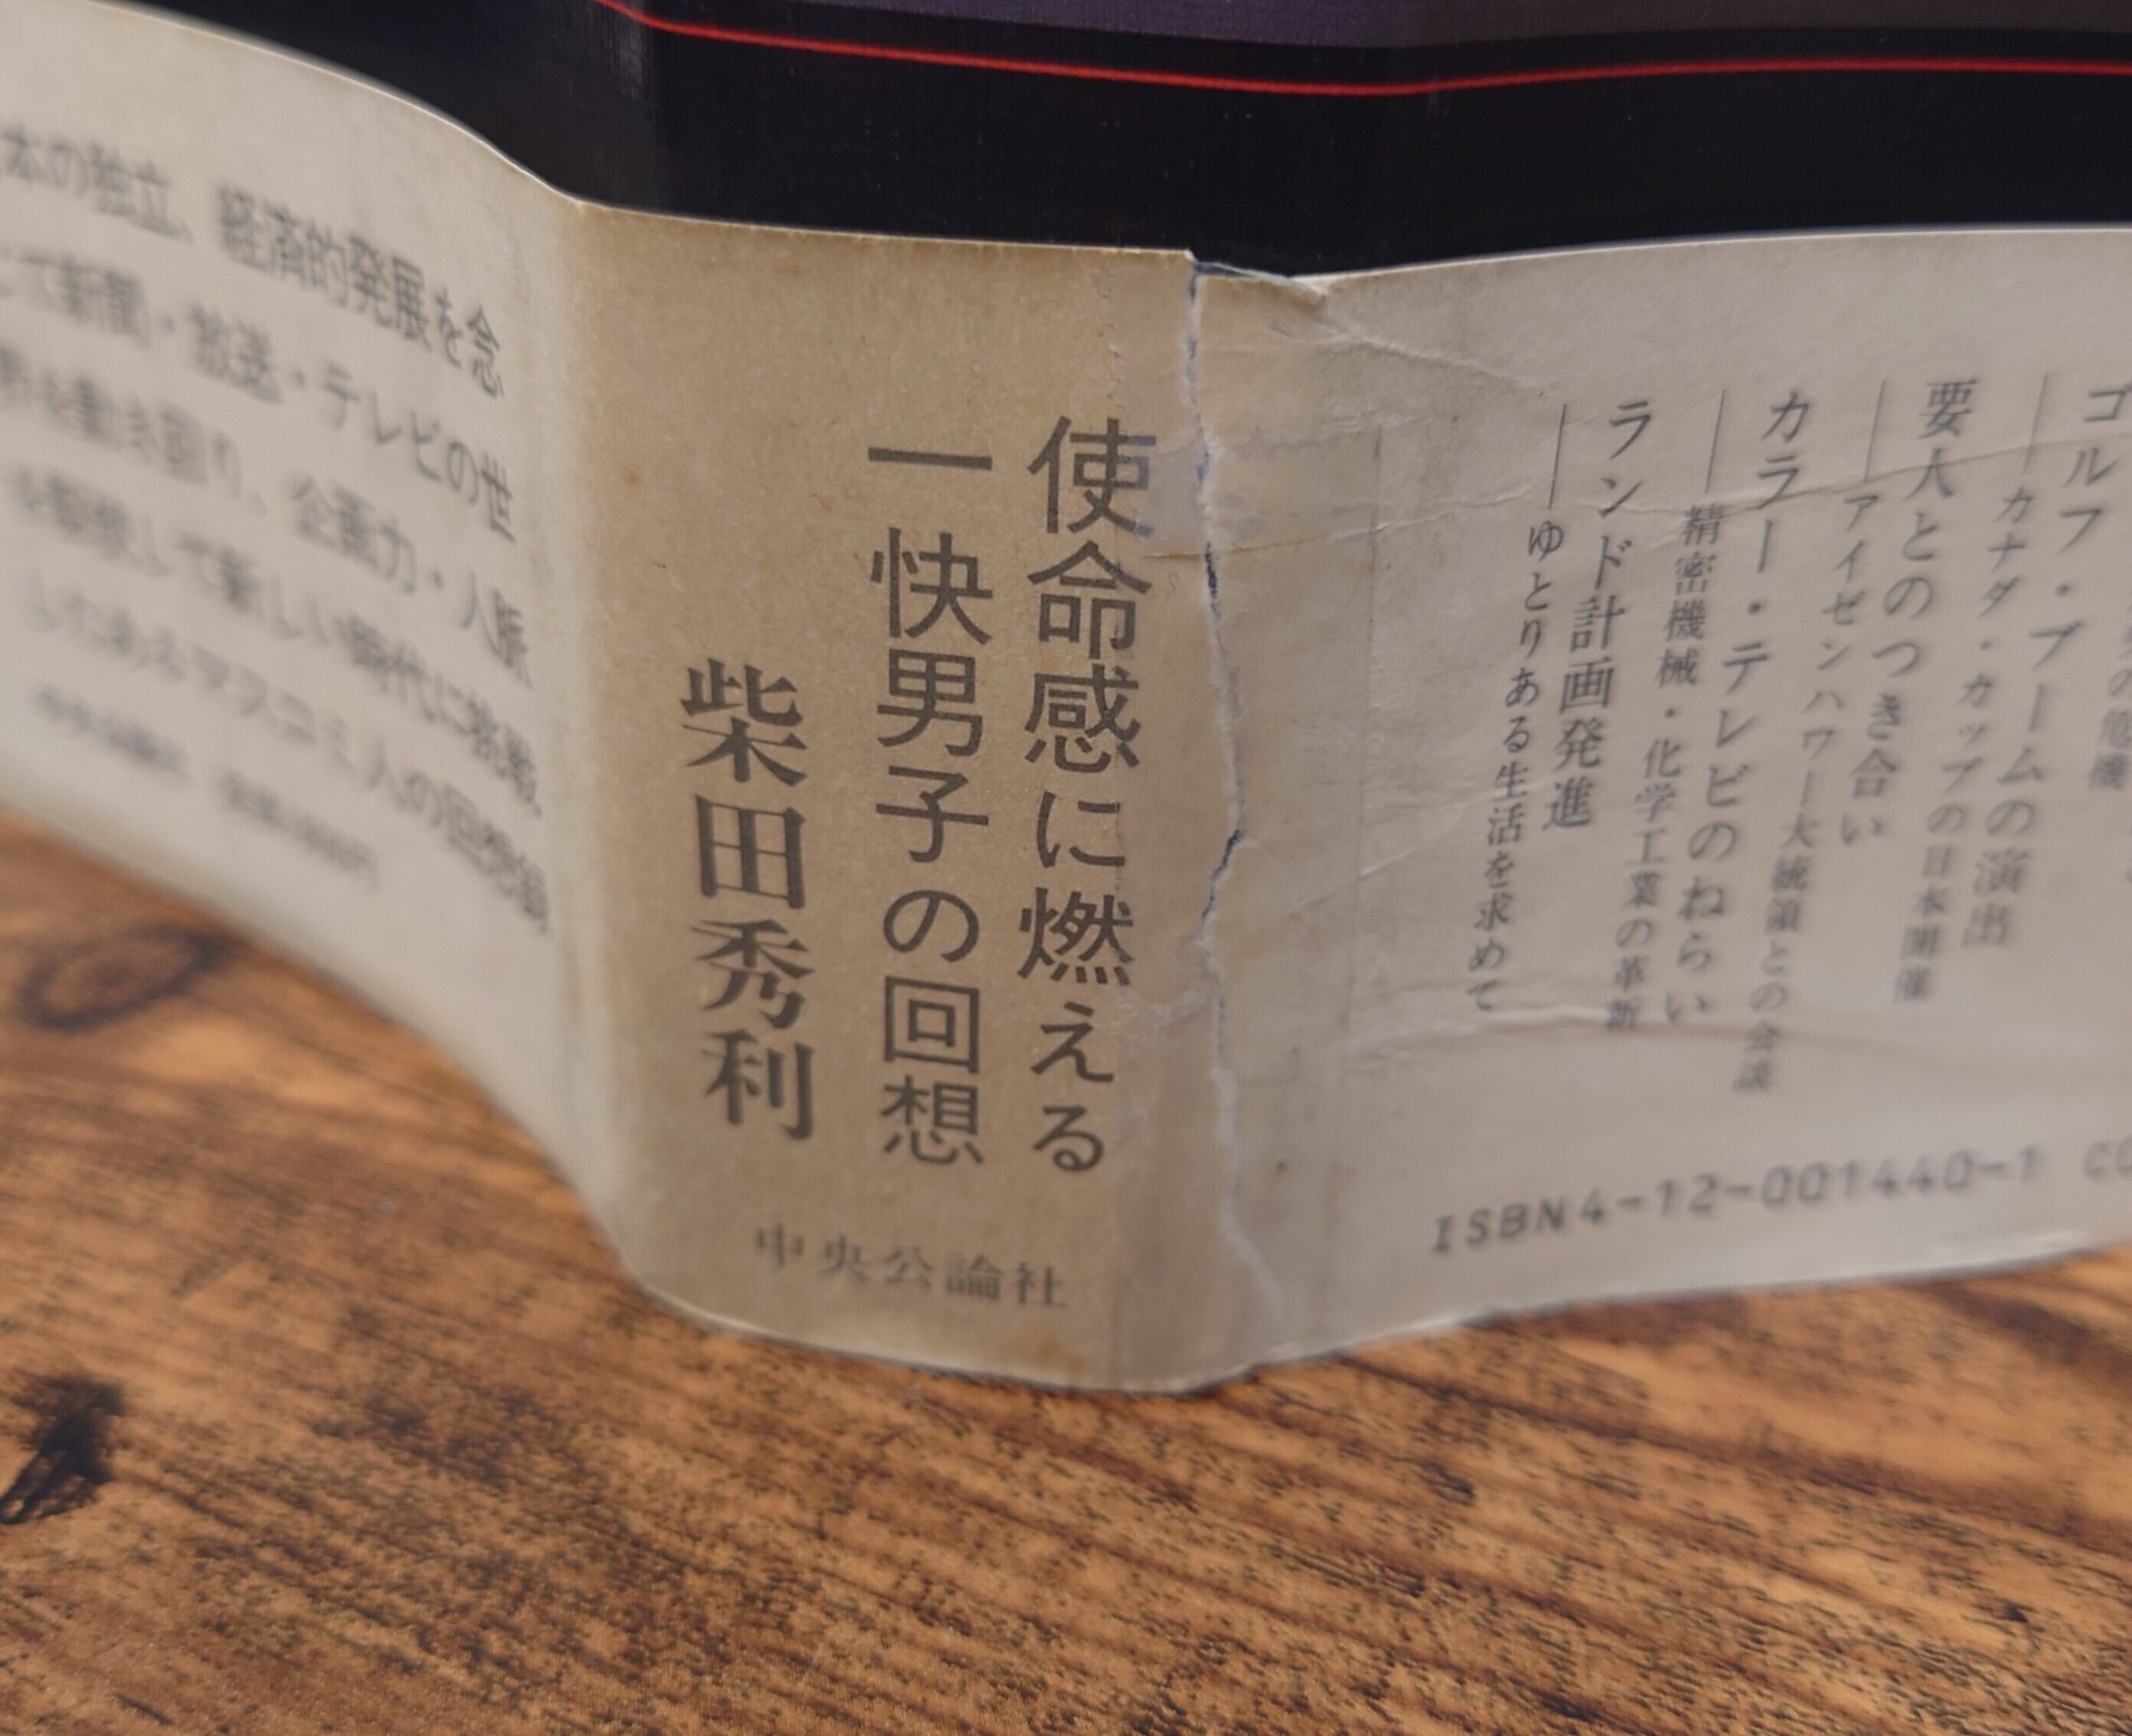 ゴルフ・ブームの演出
―カナダ・カップの日本開催
要人とのつき合い
―アイゼンハワー大統領との会談
カラー・テレビのねらい
―精密機械・化学工業の革新
ランド計画発進
―ゆとりある生活を求めて
ISBN4-12-001440-1
使命感に燃える
一快男子の回想
柴田秀利
中央公論社
本の独立、経済的発展を念
て新聞・放送・テレビの世
を動き回り、企画力・人脈
を駆使して新しい時代に挑戦
したあるマスコミ人の回想録
中央公論社